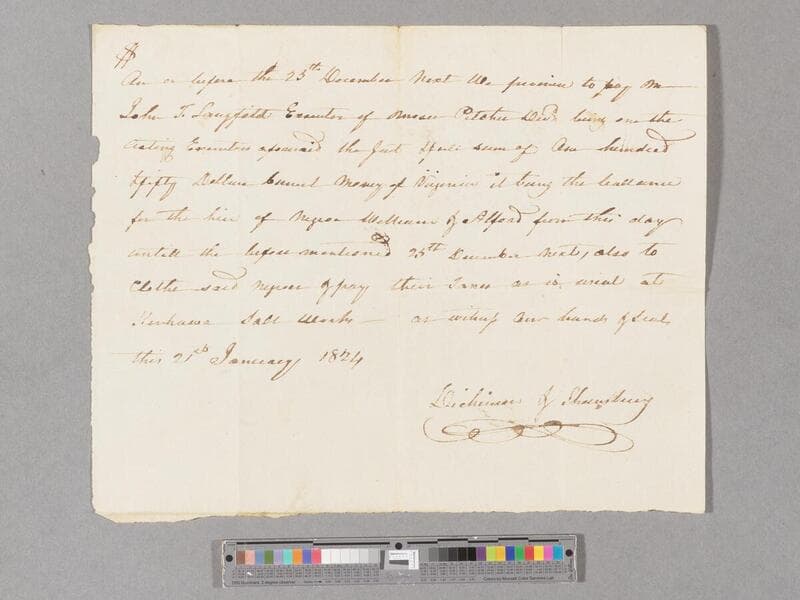 On or before the 25th December next We promise to pay
John T. Langfitt Executor of Moses Pitcher Decd being one the
Acting Executors aforesaid the Just & full sum of One hundred
& fifty Dollars Current Money of Virginia it being the
for the hire of Negroes William & Alford from this day
untill the before mentioned 25th December next, also to
Clothe said negroes & pay their Taxes as is usual at
Kenhawa Salt Works — as witness Our hands & Seals
this 21st January 1824
Dickinson & Shrewsbury